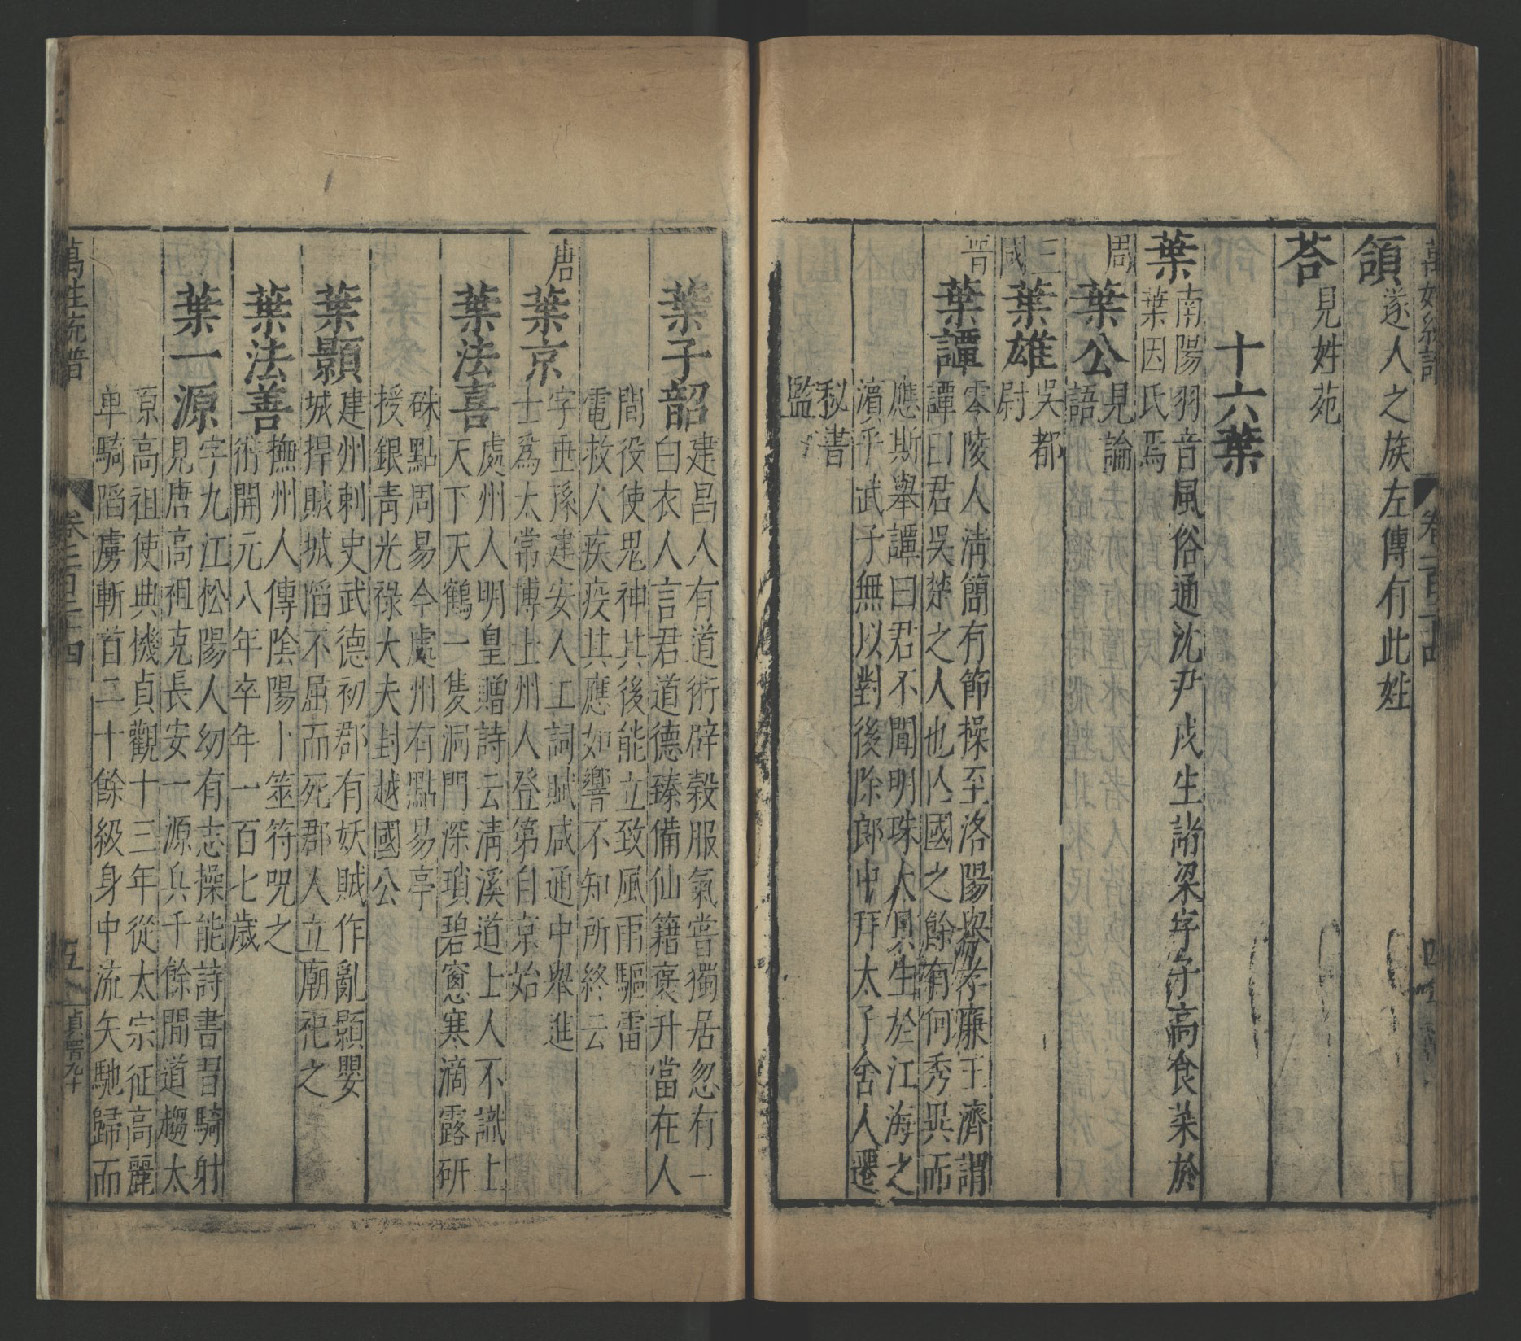 萬姓統譜
卷一百二十四
頜
遂人之族左傳有此姓
荅
見姓苑
十六葉
葉
南陽羽音風俗通沈尹戌生諸梁字子高食菜於
葉因氏焉
周
葉公
見論
語
三國
葉雄
吳都
尉
晉
葉譚
零陵人清簡有節操至洛陽舉孝廉王濟謂
譚曰君吳楚之人也亾國之餘有何秀異而
應斯舉譚曰君不聞明珠大貝生於江海之
濱乎武子無以對後除郎中拜太子舍人遷
秘書
監
葉子韶
建昌人有道術辟穀服氣嘗獨居忽有一
白衣人言君道德臻備仙籍褒升當在人
間役使鬼神其後能立致風雨驅雷
電救人疾疫其應如響不知所終云
唐
葉京
字垂孫建安人工詞賦咸通中舉進
士爲太常博士州人登第自京始
葉法喜
處州人明皇贈詩云清溪道士人不識上
天下天鶴一隻洞門深瑣碧窻寒滴露研
硃點周易今處州有點易亭
授銀青光祿大夫封越國公
葉顥
建州刺史武德初郡有妖賊作亂顥嬰
城捍賊城陷不屈而死郡人立廟祀之
葉法善
撫州人傳陰陽卜筮符咒之
術開元八年卒年一百七歲
葉一源
字九江松陽人幼有志操能詩書習騎射
見唐高祖克長安一源兵千餘間道趨太
原高祖使典機貞觀十三年從太宗征高麗
单騎蹈虜斬首二十餘級身中流矢馳歸而
萬姓統譜
卷一百二十四
五